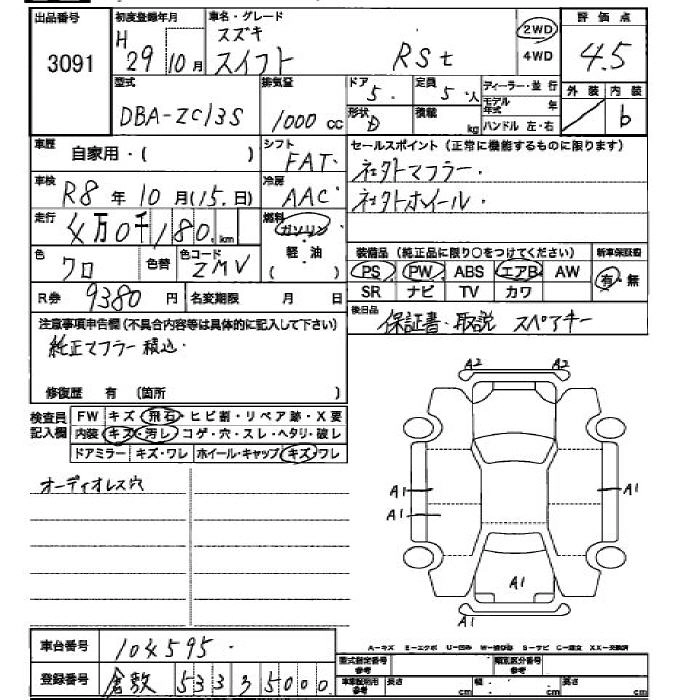 出品番号 初度登録年月 車名・グレード 評価点
3091 H 29年10月 スズキ スイフト RSt 2WD 4WD 4.5
型式 排気量 ドア 定員 ディーラー・並行 外装 内装
DBA-ZC13S 1000cc 5. 5.人 モデル年式 年 b
形状 D 積載 kg ハンドル 左・右
車歴 自家用・( ) シフト FAT セールスポイント (正常に機能するものに限ります)
車検 R8年10月(15日) 冷房 AAC 社外マフラー・
社外ホイール・
走行 4万0千180.km 燃料 ガソリン 軽・油
色 クロ 色替 色コード ZMV
装備品 (純正品に限り○をつけてください) 新車保証書
PS PW ABS エアB AW 有・無
SR ナビ TV カワ
R券 9380円 名変期限 月 日
後日品 保証書・取説 スペアキー
注意事項申告欄(不具合内容等は具体的に記入して下さい)
純正マフラー積込・
修復歴 有 (箇所 )
検査員記入欄 FW キズ・飛石・ヒビ割・リペア跡・X要
内装 キズ・汚レ・コゲ・穴・スレ・ヘタリ・破レ
ドアミラー キズ・ワレ ホイール・キャップ キズ・ワレ
オーディオレス穴
A2 A2
A1 A1
A1
A1
A1
A-キズ E-エクボ U-凹み W-波ひ形 S-サビ C-腐食 XX-交換済
車台番号 104595・
登録番号 倉敷 533 る 5000
型式指定番号 参考 類別区分番号 参考
車車証照用 参考 長さ cm 幅 cm 高さ cm